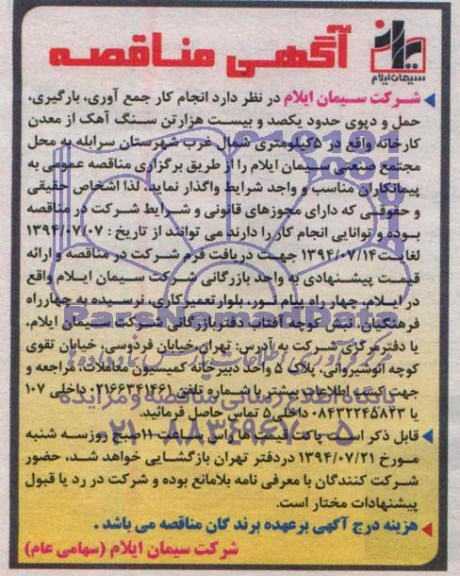 آگهی مناقصه
سیمان ایلام
شرکت سیمان ایلام در نظر دارد انجام کار جمع آوری، بارگیری،
حمل و دپوی حدود یکصد و بیست هزارتن سنگ آهک از معدن
کارخانه واقع در ۵کیلومتری شمال غرب شهرستان سرابله به محل
مجتمع صنعتی سیمان ایلام را از طریق برگزاری مناقصه عمومی به
پیمانکاران مناسب و واجد شرایط واگذار نماید. لذا اشخاص حقیقی
و حقوقی که دارای مجوزهای قانونی و شرایط شرکت در مناقصه
بوده و توانایی انجام کار را دارند می توانند از تاریخ : ۱۳۹۴/۰۷/۰۷
لغایت ۱۳۹۴/۰۷/۱۴ جهت دریافت فرم شرکت در مناقصه و ارائه
قیمت پیشنهادی به واحد بازرگانی شرکت سیمان ایلام واقع
در ایلام، چهار راه پیام نور، بلوار تعمیرکاری، نرسیده به چهارراه
فرهنگیان، نبش کوچه آفتاب دفتر بازرگانی شرکت سیمان ایلام،
یا دفتر مرکزی شرکت به آدرس: تهران، خیابان فردوسی، خیابان تقوی
کوچه انوشیروانی، پلاک ۵ واحد دبیرخانه کمیسیون معاملات، مراجعه و
جهت کسب اطلاعات بیشتر با شماره تلفن ۰۲۱۶۶۳۴۱۴۶۱ داخلی ۱۰۷
یا ۰۸۴۳۲۲۴۵۸۴۳ داخلی ۵ تماس حاصل فرمائید.
قابل ذکر است پاکت قیمت ها رأس ساعت ۱۱صبح روز سه شنبه
مورخ ۱۳۹۴/۰۷/۲۱ در دفتر تهران بازگشایی خواهد شد، حضور
شرکت کنندگان با معرفی نامه بلامانع بوده و شرکت در رد یا قبول
پیشنهادات مختار است.
هزینه درج آگهی برعهده برنده گان مناقصه می باشد .
شرکت سیمان ایلام (سهامی عام)
ParsNamadData
پایگاه اطلاع رسانی مناقصه و مزایده
۰۲۱-۸۸۳۴۹۶۷۰-۵